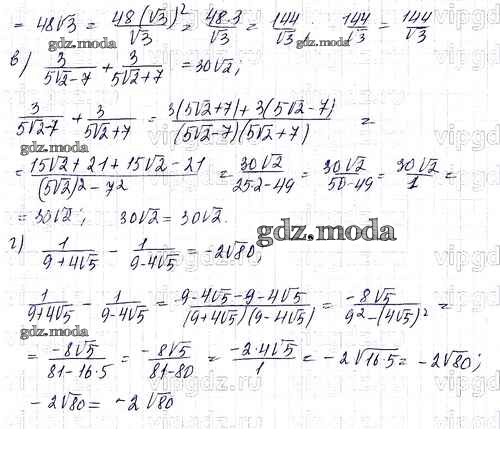 = 48√3 = 48(√3)²/√3 = 48·3/√3 = 144/√3, 144/√3 = 144/√3
gdz.moda gdz.moda
в) 3/(5√2-7) + 3/(5√2+7) = 30√2;
3/(5√2-7) + 3/(5√2+7) = (3(5√2+7)+3(5√2-7))/((5√2-7)(5√2+7)) =
gdz.moda
= (15√2+21+15√2-21)/((5√2)²-7²) = 30√2/(25·2-49) = 30√2/(50-49) = 30√2/1 =
= 30√2; 30√2 = 30√2.
gdz.moda
г) 1/(9+4√5) - 1/(9-4√5) = -2√80;
gdz.moda
1/(9+4√5) - 1/(9-4√5) = (9-4√5-9-4√5)/((9+4√5)(9-4√5)) = -8√5/(9²-(4√5)²) =
= -8√5/(81-16·5) = -8√5/(81-80) = -2·4√5/1 = -2√(16·5) = -2√80;
-2√80 = -2√80
vipgdz.ru